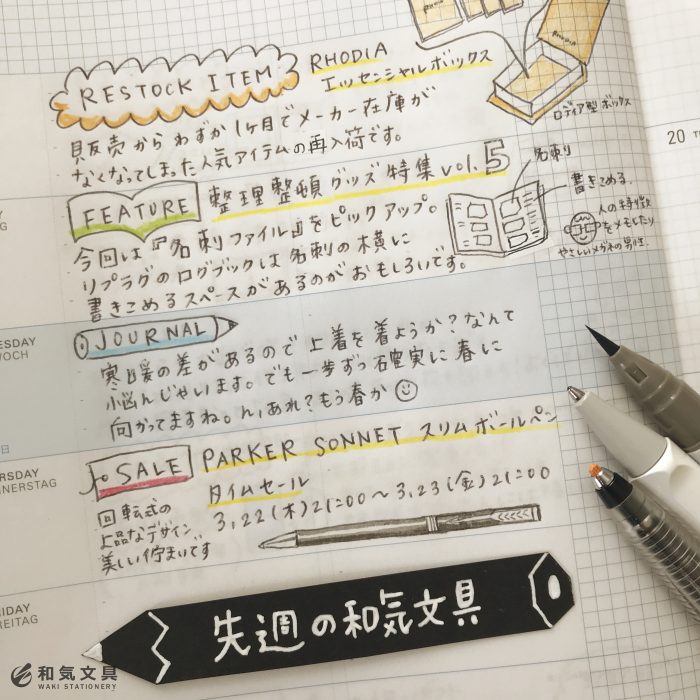 RHODIA
RESTOCK ITEM
RHODIA
エッセンシャルボックス
ロディア型ボックス
販売からわずか1ヶ月でメーカー在庫が
なくなってしまった人気アイテムの再入荷です。
20
FEATURE
整理整頓グッズ特集vol.5
名刺
書きこめる。
人の特徴
をメモしたり
やさしいメガネの男性。
今回は『名刺ファイル』をピックアップ。
リプラグのログブックは名刺の横に
書きこめるスペースがあるのがおもしろいです。
JOURNAL
寒暖の差があるので上着を着ようか?なんて
悩んじゃいます。でも一歩ずつ確実に春に
向かってますね。ん,あれ?もう春か
SALE
PARKER SONNET スリムボールペン
タイムセール
3,22(木)21:00〜3,23(金)21:00
回転式の
上品なデザイン
美しい佇まいです
先週の和気文具
和気文具
WAKI STATIONERY